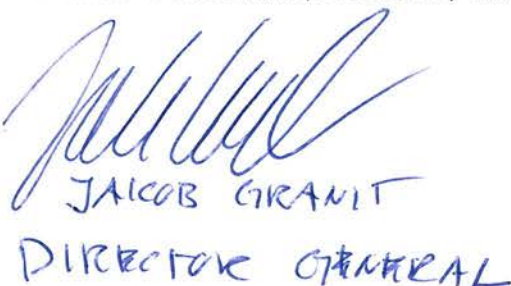 JAKOB GRANIT
DIRECTOR GENERAL